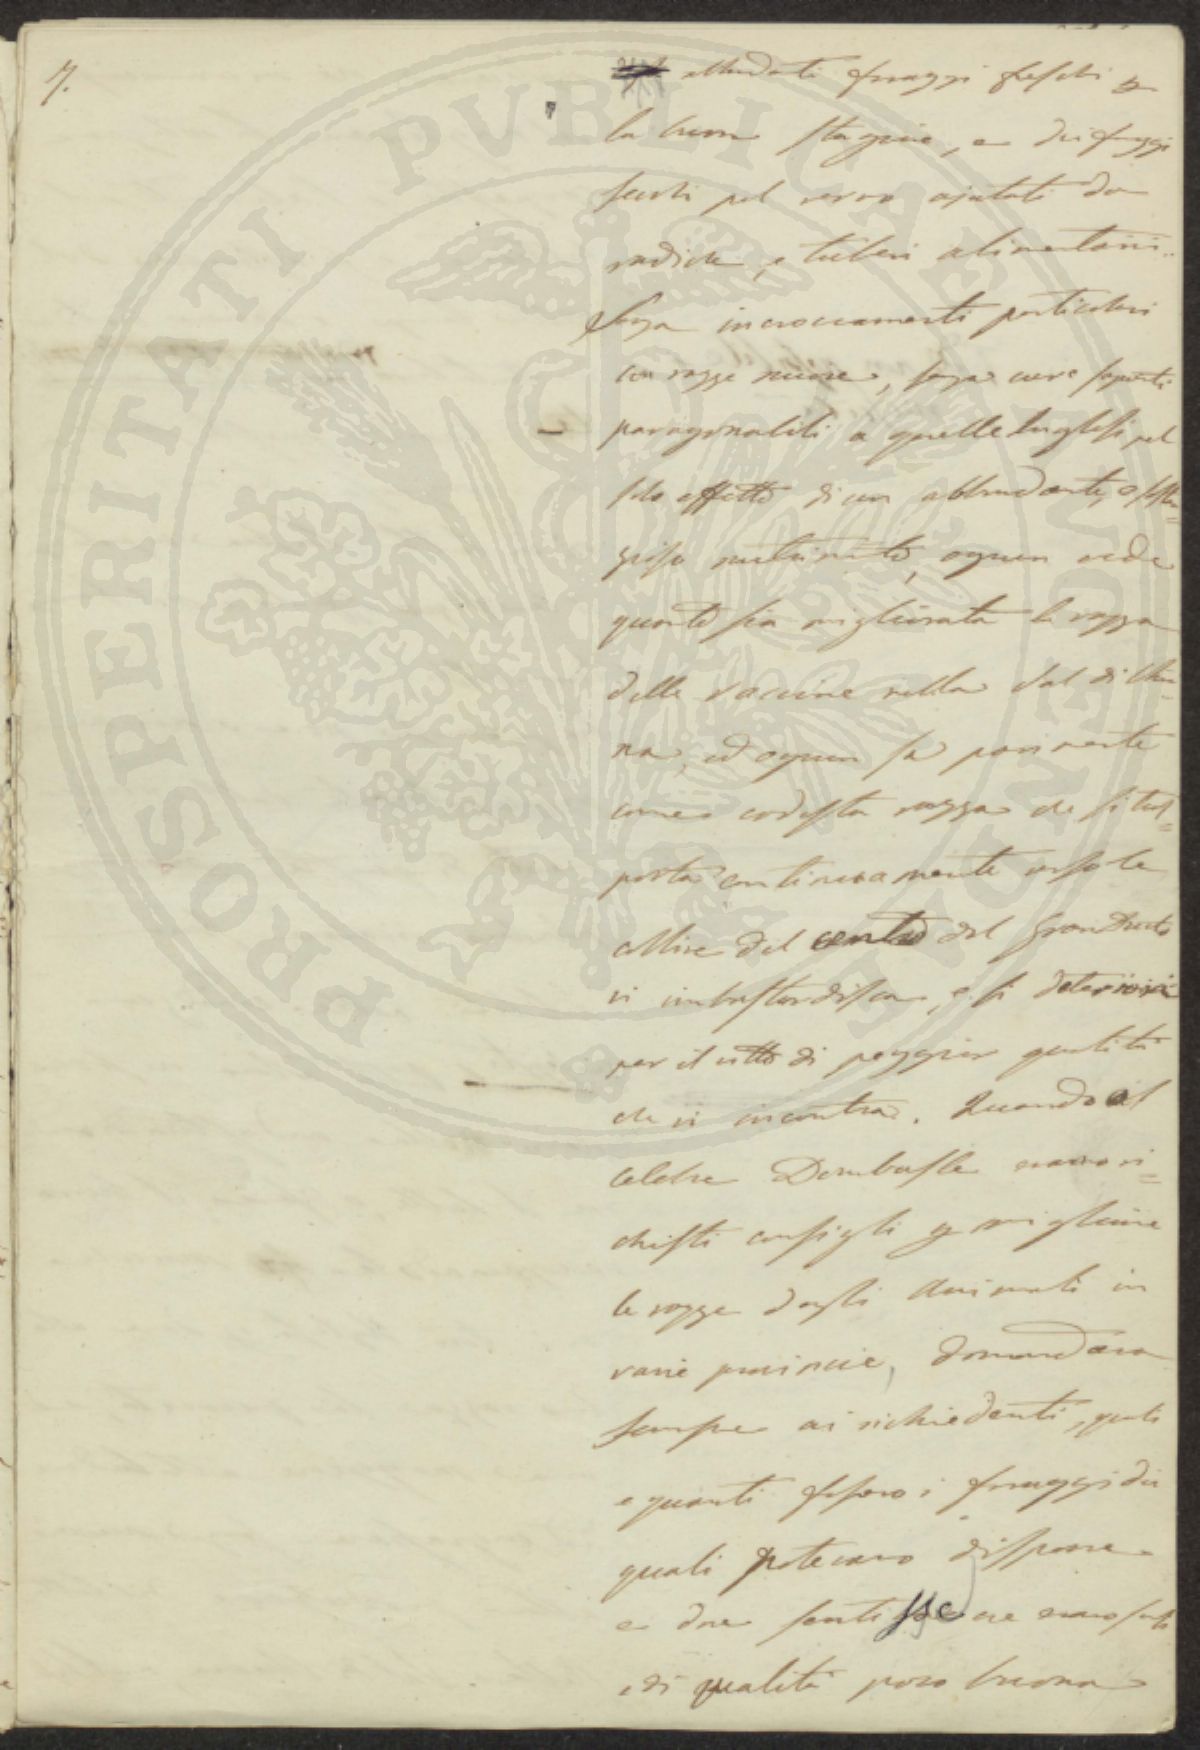 7.
abbondanti foraggi freschi per
la buona stagione, e dei foraggi
secchi pel verno ajutati da
radiche, e tuberi alimentarii.
Senza incrociamenti particolari
con razze nuove, senza cure
paragonabili a quelle Inglesi, pel
solo effetto di un abbondante, e sostan=
zioso nutrimento, ognun vede
quanto sia migliorata la razza
delle vaccine nella Val di Chia=
na, ed ognun sa parimente
come codesta razza che si tras=
porta continuamente verso le
colline del centro del GranDucato
vi imbastardisca, e si deteriori
per il vitto di peggior qualità
che vi incontra. Quando il
celebre Dombasle erano ri=
chiesti consigli per migliorare
le razze degli animali in
varie provincie, domandava
sempre ai richiedenti, quali
e quanti fossero i foraggi dei
quali potevano disporre
e dove sentisse che erano
e di qualità poco buona
PROSPERITATI PVBLICAE